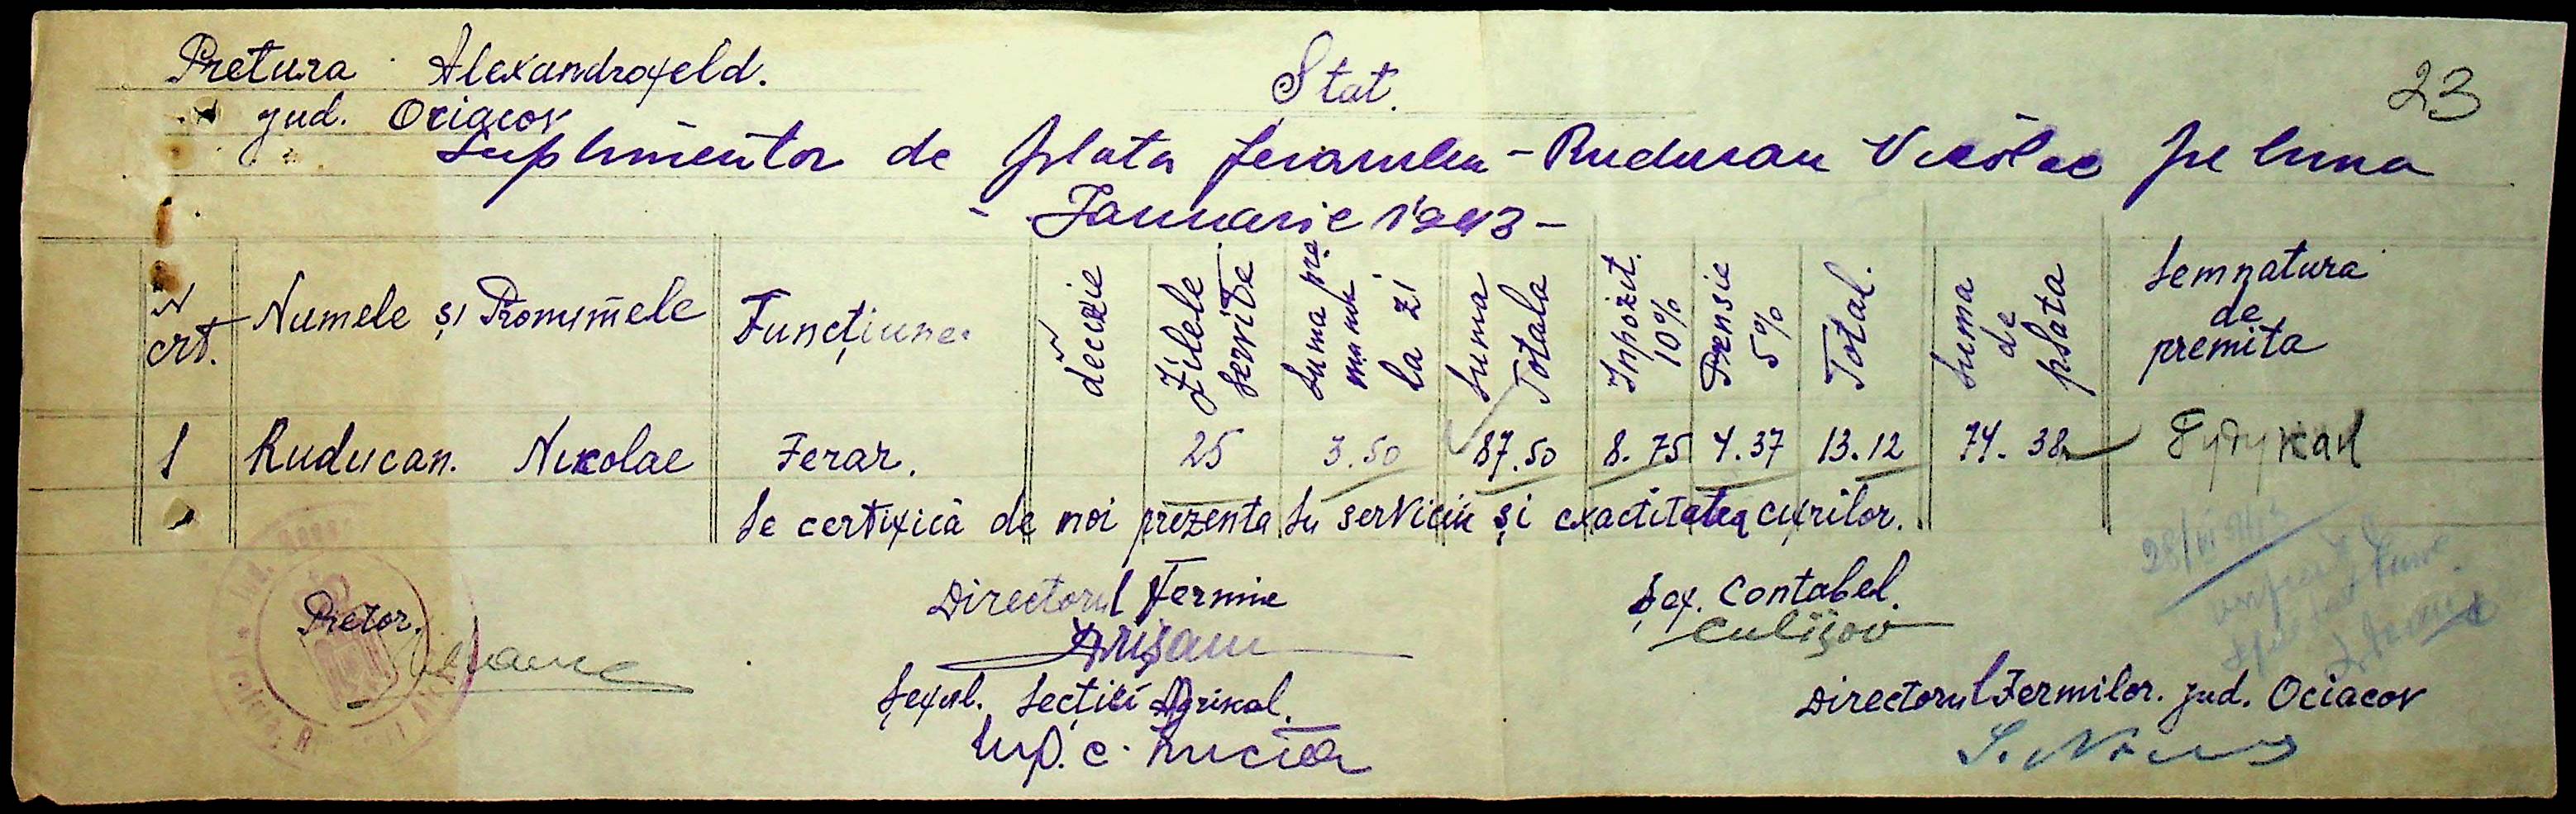 Pretura Alexandrofeld.
Stat.
23
jud. Ociacov
Suplimentar de plata ferarului - Ruducan Nicolae pe luna
- Januarie 1943 -
N crt. Numele și Pronumele Funcțiune. N decizie Zilele servite Suma pre munk la zi Suma Totala Inpozit. 10% Pensie 5% Total. Suma de plata Semnatura de premita
1 Ruducan. Nicolae Ferar. 25 3.50 87.50 8.75 4.37 13.12 74.38 Гудукан
Se certifică de noi prezenta în serviciu și exactitatea cifrilor.
Pretor.
Directorul Fermine
Șef. Contabel.
Culișov
Șeful. Secției Agrikol.
Directorul Fermilor. jud. Ociacov